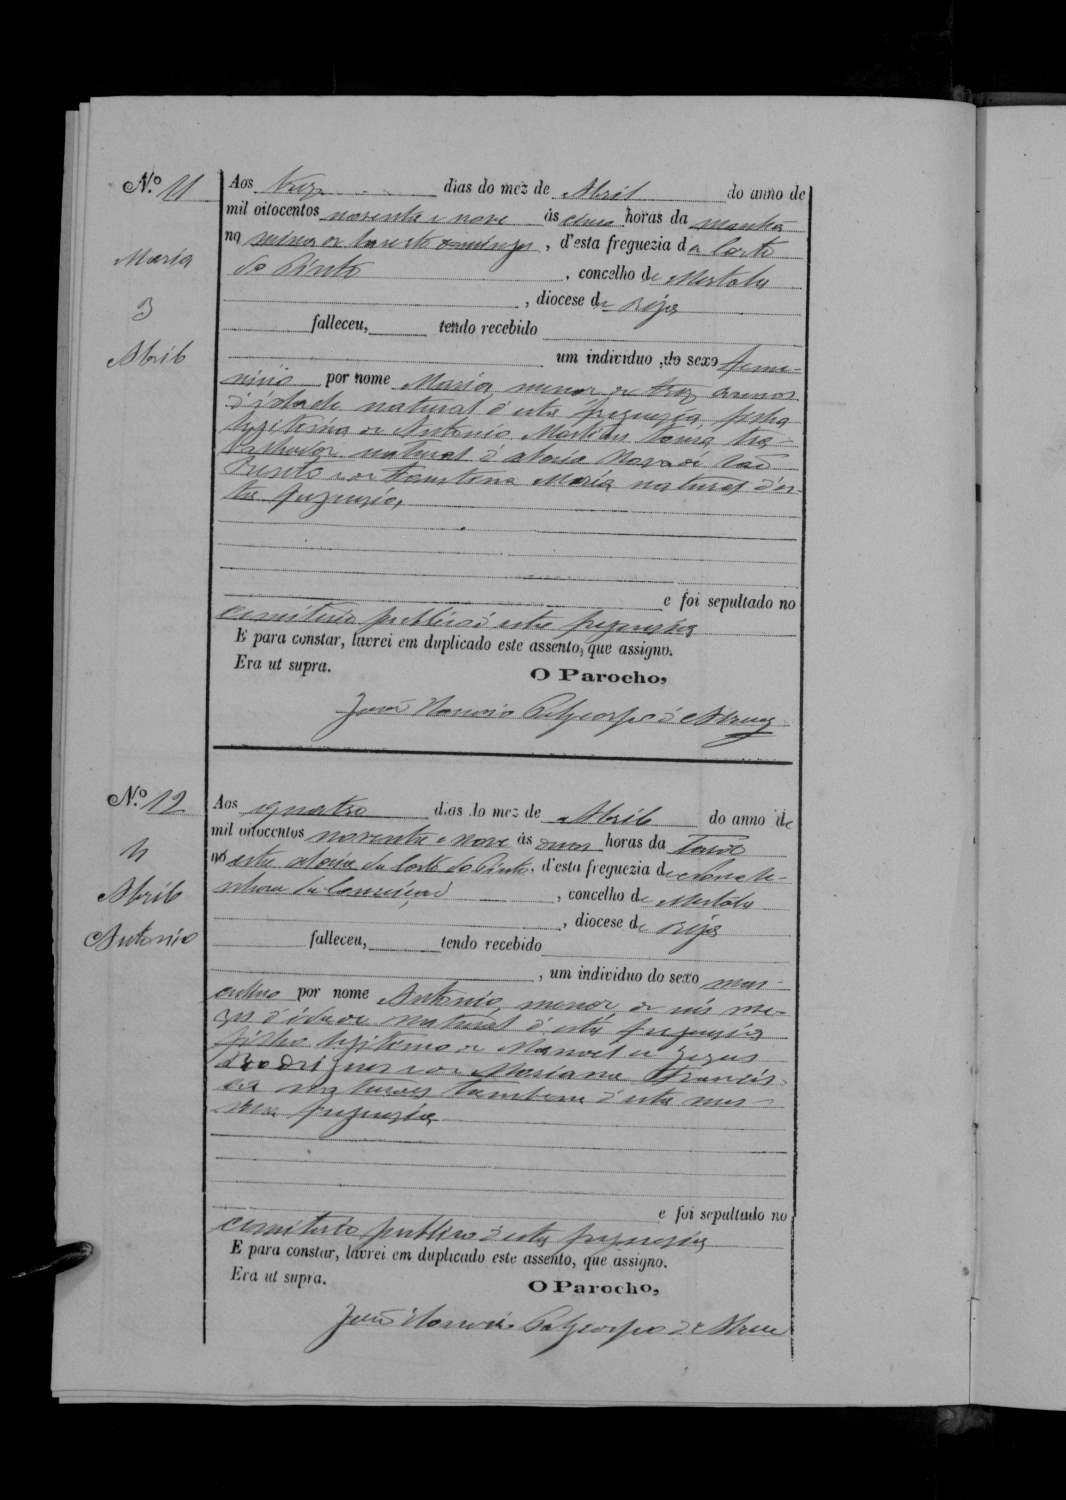 N.º 11
Maria
3
Abril
Aos trez dias do mez de Abril do anno de
mil oitocentos noventa e nove ás cinco horas da manhã
na mina de São Domingos, d'esta freguezia da Corte
do Pinto, concelho de Mertola
, diocese de Beja
falleceu, tendo recebido
um individuo do sexo femi-
nino por nome Maria, menor de trez annos
d'idade natural d'esta freguezia, filha
legitima de Antonio Martins tra-
balhador natural d'aldeia Nova de São
Bento e de Faustina Maria natural d'es-
ta freguezia,
e foi sepultado no
cemiterio publico d'esta freguezia
E para constar, lavrei em duplicado este assento, que assigno.
Era ut supra.
O Parocho,
João d'Abreu
N.º 12
4
Abril
Antonio
Aos quatro dias do mez de Abril do anno de
mil oitocentos noventa e nove ás duas horas da tarde
n'esta aldeia da Corte do Pinto, d'esta freguezia de Nossa Se-
nhora da Conceição, concelho de Mertola
, diocese de Beja
falleceu, tendo recebido
, um individuo do sexo mas-
culino por nome Antonio, menor de seis me-
zes d'idade natural d'esta freguezia
filho legitimo de Manoel de Jezus
Rodrigues e de Mariana Francis-
ca naturaes tambem d'esta mes-
ma freguezia
e foi sepultado no
cemiterio publico d'esta freguezia
E para constar, lavrei em duplicado este assento, que assigno.
Era ut supra.
O Parocho,
João d'Abreu